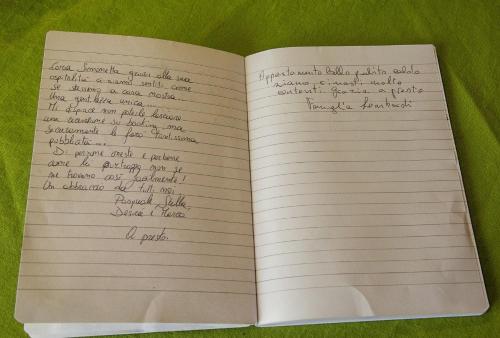 Cara Simonetta grazie alla sua
ospitalità ci siamo sentiti come
se stessimo a casa nostra.
Una gentilezza unica....
Mi dispiace non poterle lasciare
una recensione su booking ma
sicuramente le farò tantissima
pubblicità...
Di persone oneste e perbene
come lei purtroppo non se
ne trovano così facilmente!
Un abbraccio da tutti noi
Pasquale, Stella,
Desirè e Marco
A presto.
Appartamento bello pulito caldo
siamo rimasti molto
contenti. Grazie a presto
Famiglia Lombardi